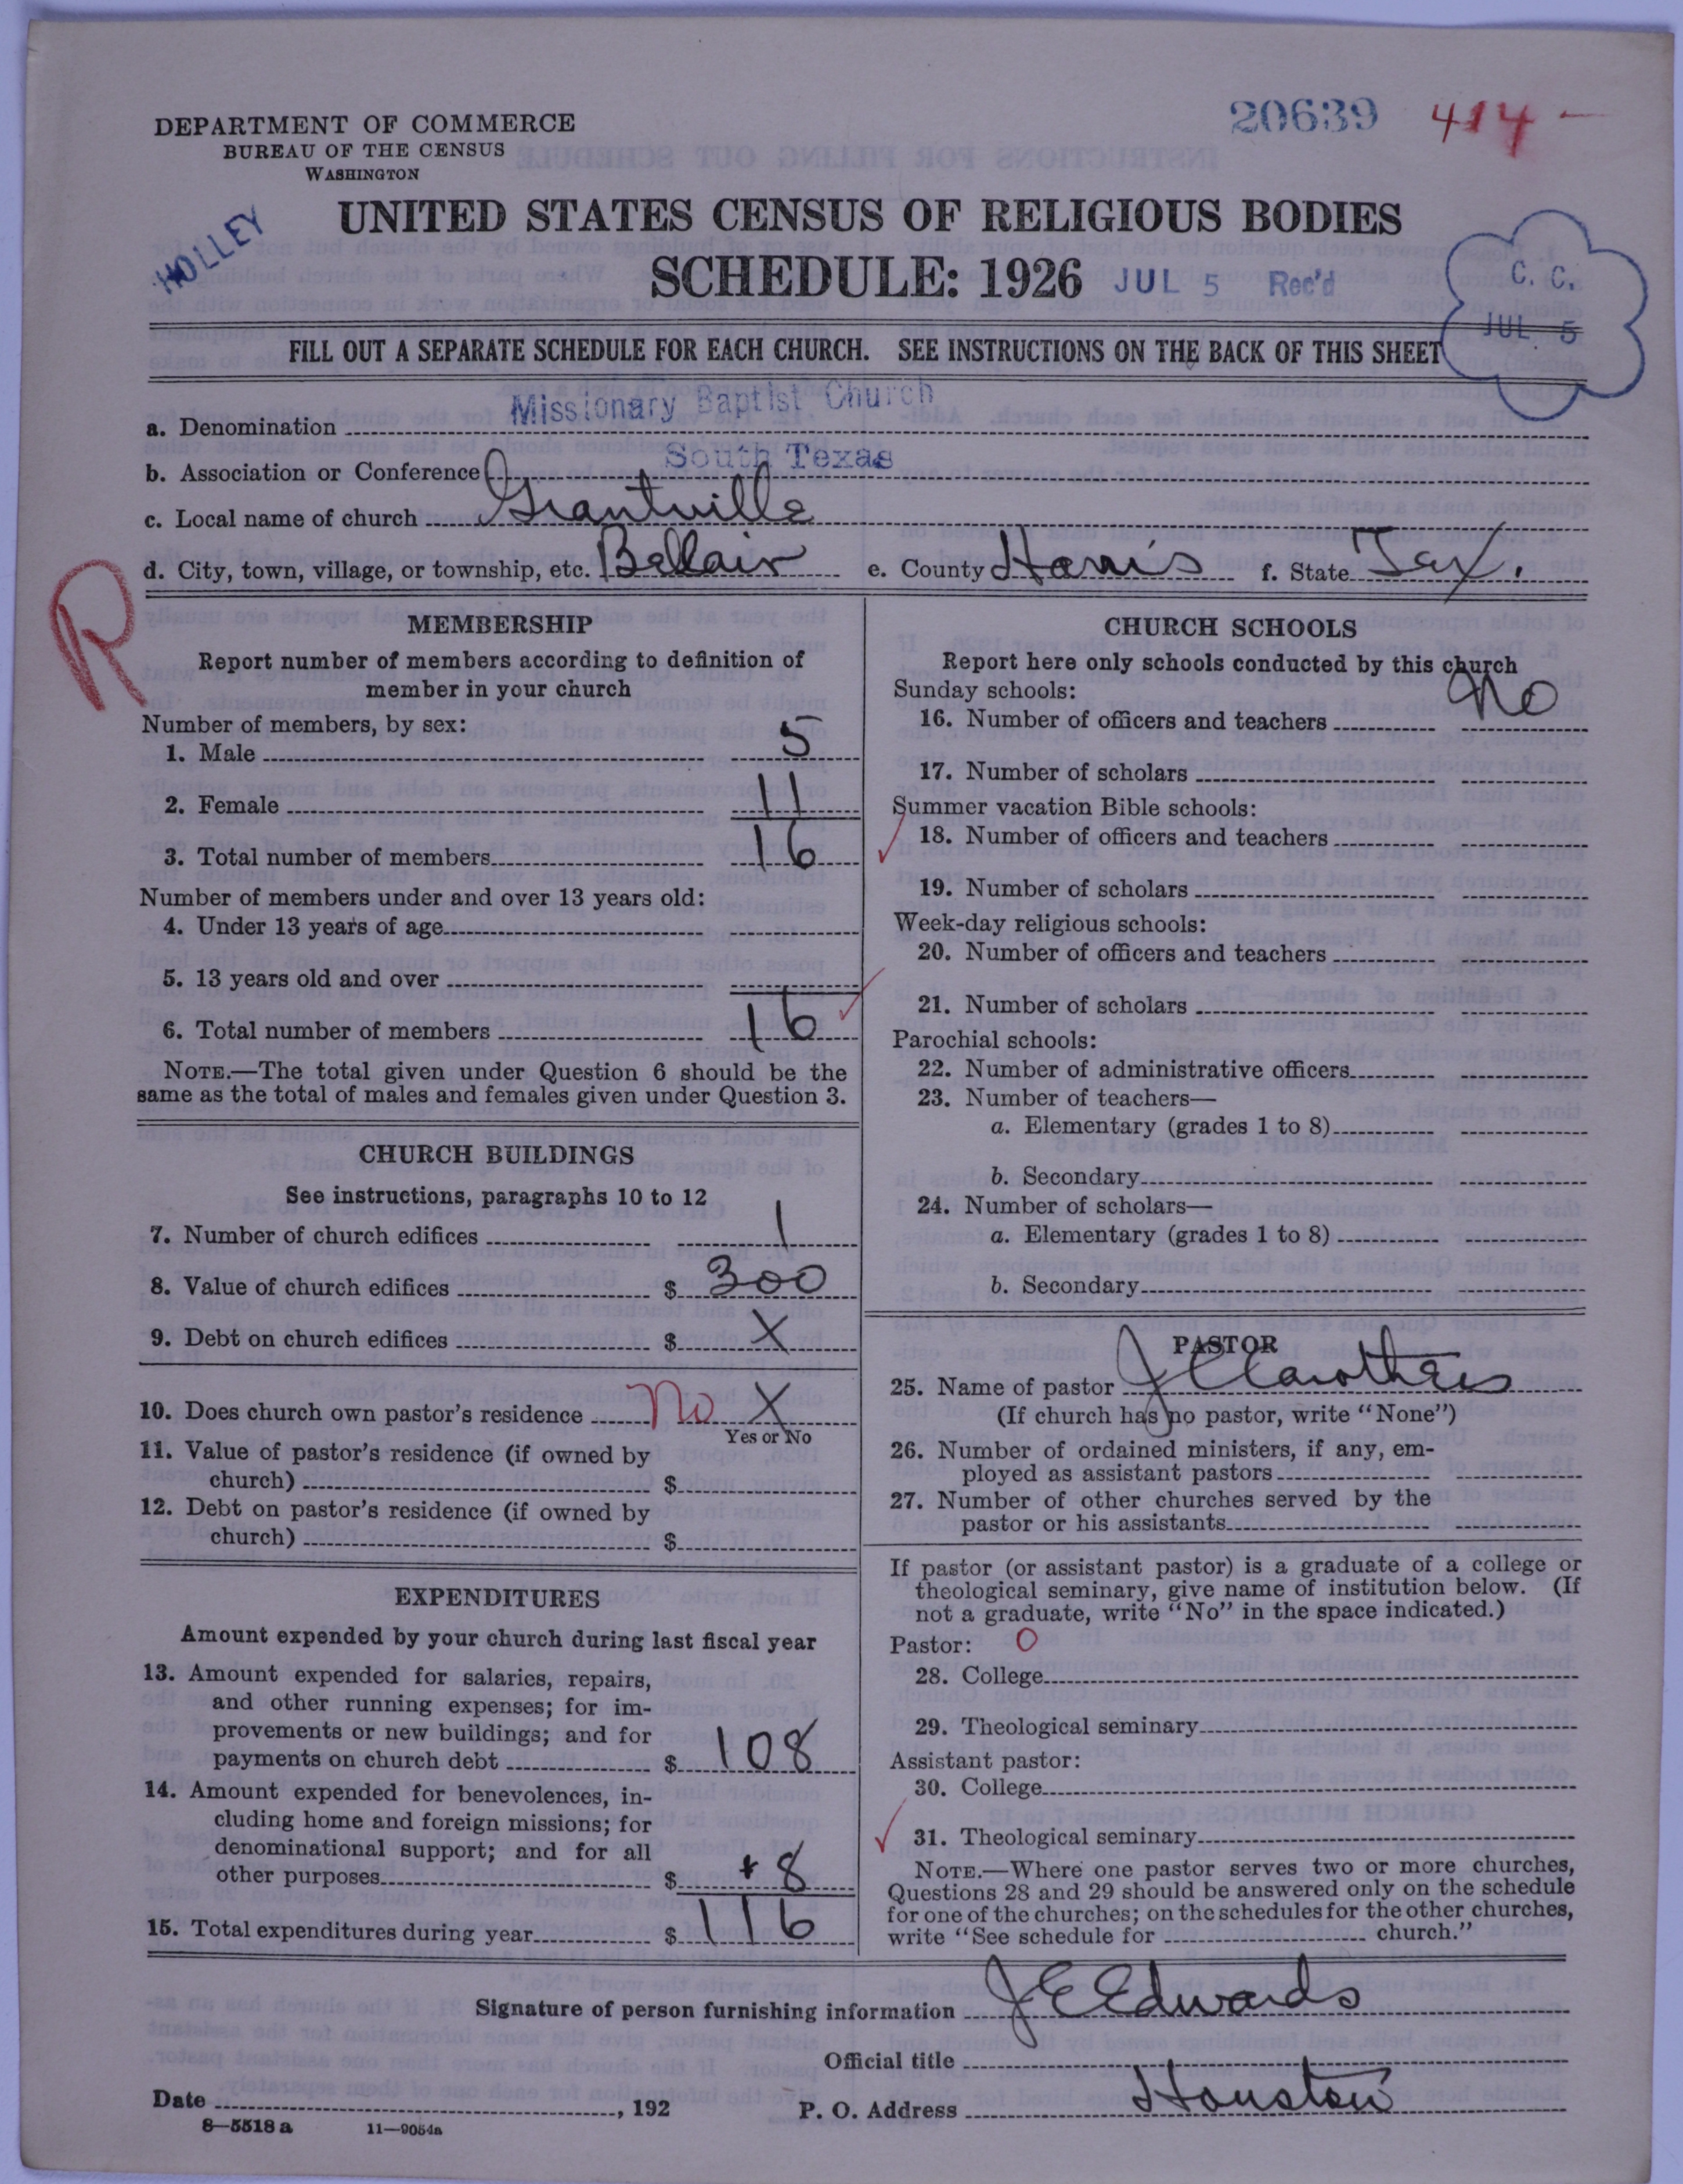 20639 414-
DEPARTMENT OF COMMERCE
BUREAU OF THE CENSUS
WASHINGTON
HOLLEY
UNITED STATES CENSUS OF RELIGIOUS BODIES
SCHEDULE: 1926 JUL 5 Rec'd
C. C.
JUL 5
FILL OUT A SEPARATE SCHEDULE FOR EACH CHURCH. SEE INSTRUCTIONS ON THE BACK OF THIS SHEET
a. Denomination Missionary Baptist Church
b. Association or Conference South Texas
c. Local name of church Grantville
d. City, town, village, or township, etc. Bellair e. County Harris f. State Tex.
R
MEMBERSHIP
Report number of members according to definition of
member in your church
Number of members, by sex:
1. Male 5
2. Female 11
3. Total number of members 16
Number of members under and over 13 years old:
4. Under 13 years of age
5. 13 years old and over
6. Total number of members 16
NOTE.—The total given under Question 6 should be the
same as the total of males and females given under Question 3.
CHURCH BUILDINGS
See instructions, paragraphs 10 to 12
7. Number of church edifices 1
8. Value of church edifices $ 300
9. Debt on church edifices $ X
10. Does church own pastor's residence No X
Yes or No
11. Value of pastor's residence (if owned by
church) $
12. Debt on pastor's residence (if owned by
church) $
EXPENDITURES
Amount expended by your church during last fiscal year
13. Amount expended for salaries, repairs,
and other running expenses; for im-
provements or new buildings; and for
payments on church debt $ 108
14. Amount expended for benevolences, in-
cluding home and foreign missions; for
denominational support; and for all
other purposes $ + 8
15. Total expenditures during year $ 116
CHURCH SCHOOLS
Report here only schools conducted by this church
Sunday schools:
16. Number of officers and teachers No
17. Number of scholars
Summer vacation Bible schools:
18. Number of officers and teachers
19. Number of scholars
Week-day religious schools:
20. Number of officers and teachers
21. Number of scholars
Parochial schools:
22. Number of administrative officers
23. Number of teachers—
a. Elementary (grades 1 to 8)
b. Secondary
24. Number of scholars—
a. Elementary (grades 1 to 8)
b. Secondary
PASTOR
25. Name of pastor J C Carothers
(If church has no pastor, write "None")
26. Number of ordained ministers, if any, em-
ployed as assistant pastors
27. Number of other churches served by the
pastor or his assistants
If pastor (or assistant pastor) is a graduate of a college or
theological seminary, give name of institution below. (If
not a graduate, write "No" in the space indicated.)
Pastor: O
28. College
29. Theological seminary
Assistant pastor:
30. College
31. Theological seminary
NOTE.—Where one pastor serves two or more churches,
Questions 28 and 29 should be answered only on the schedule
for one of the churches; on the schedules for the other churches,
write "See schedule for church."
Signature of person furnishing information J E Edwards
Official title
Date , 192 P. O. Address Houston
8—5518 a 11—9054a